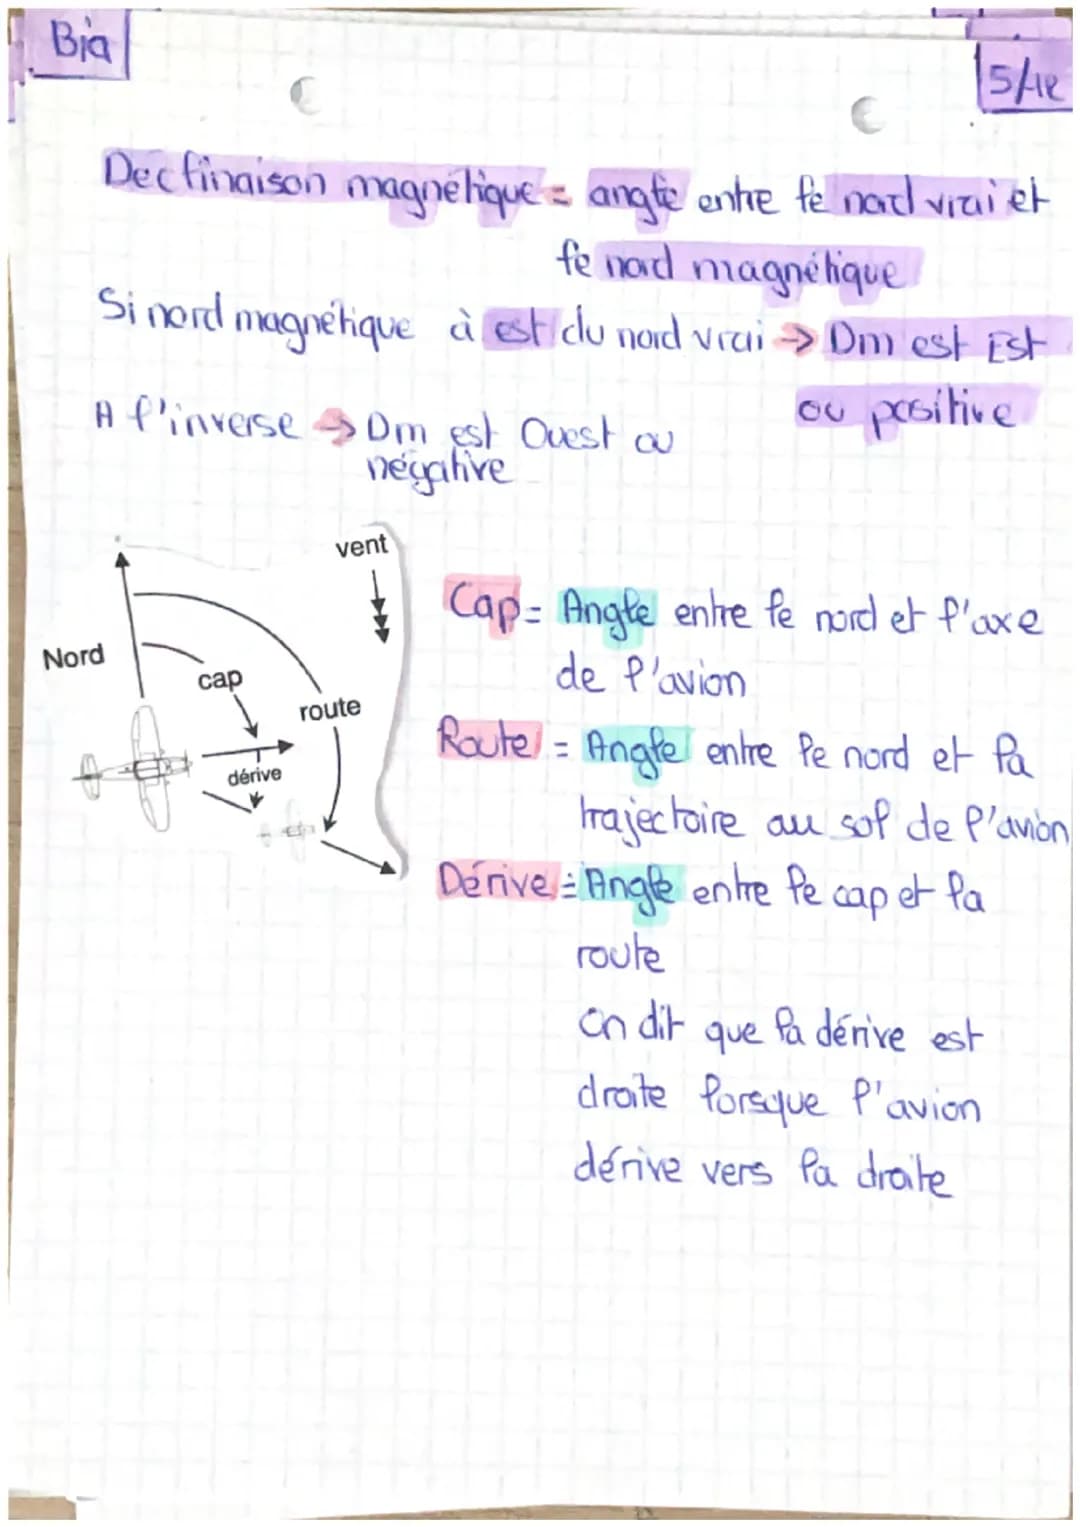 Bia
5/12
Declinaison magnétique = angle entre le nord vrai et
le nord magnétique
Si nord magnétique à est du nord vrai → Dm est Est
ou positive
A l'inverse → Dm est Ouest ou
négative
vent
Nord
cap
route
dérive
Cap = Angle entre le nord et l'axe
de l'avion
Route = Angle entre le nord et la
trajectoire au sol de l'avion
Dérive = Angle entre le cap et la
route
On dit que la dérive est
droite lorsque l'avion
dérive vers la droite